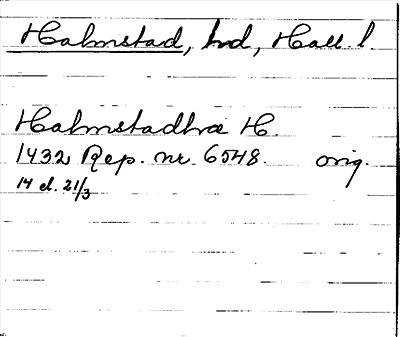 Halmstad, hd, Hall. l.
Halmstadhræ H.
1432 Rep. nr. 6548. orig.
14 el. 21/3